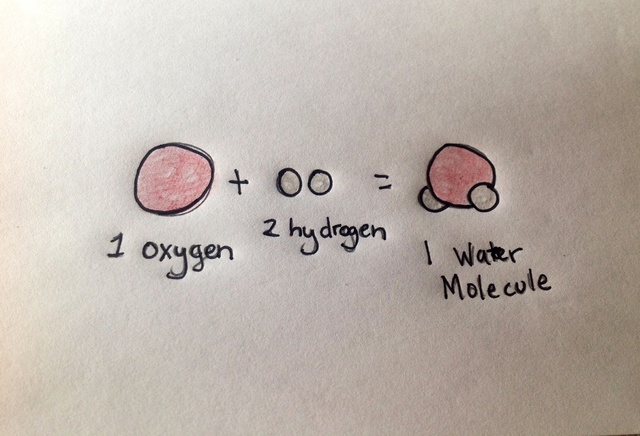 + =
1 oxygen
2 hydrogen
1 Water
Molecule